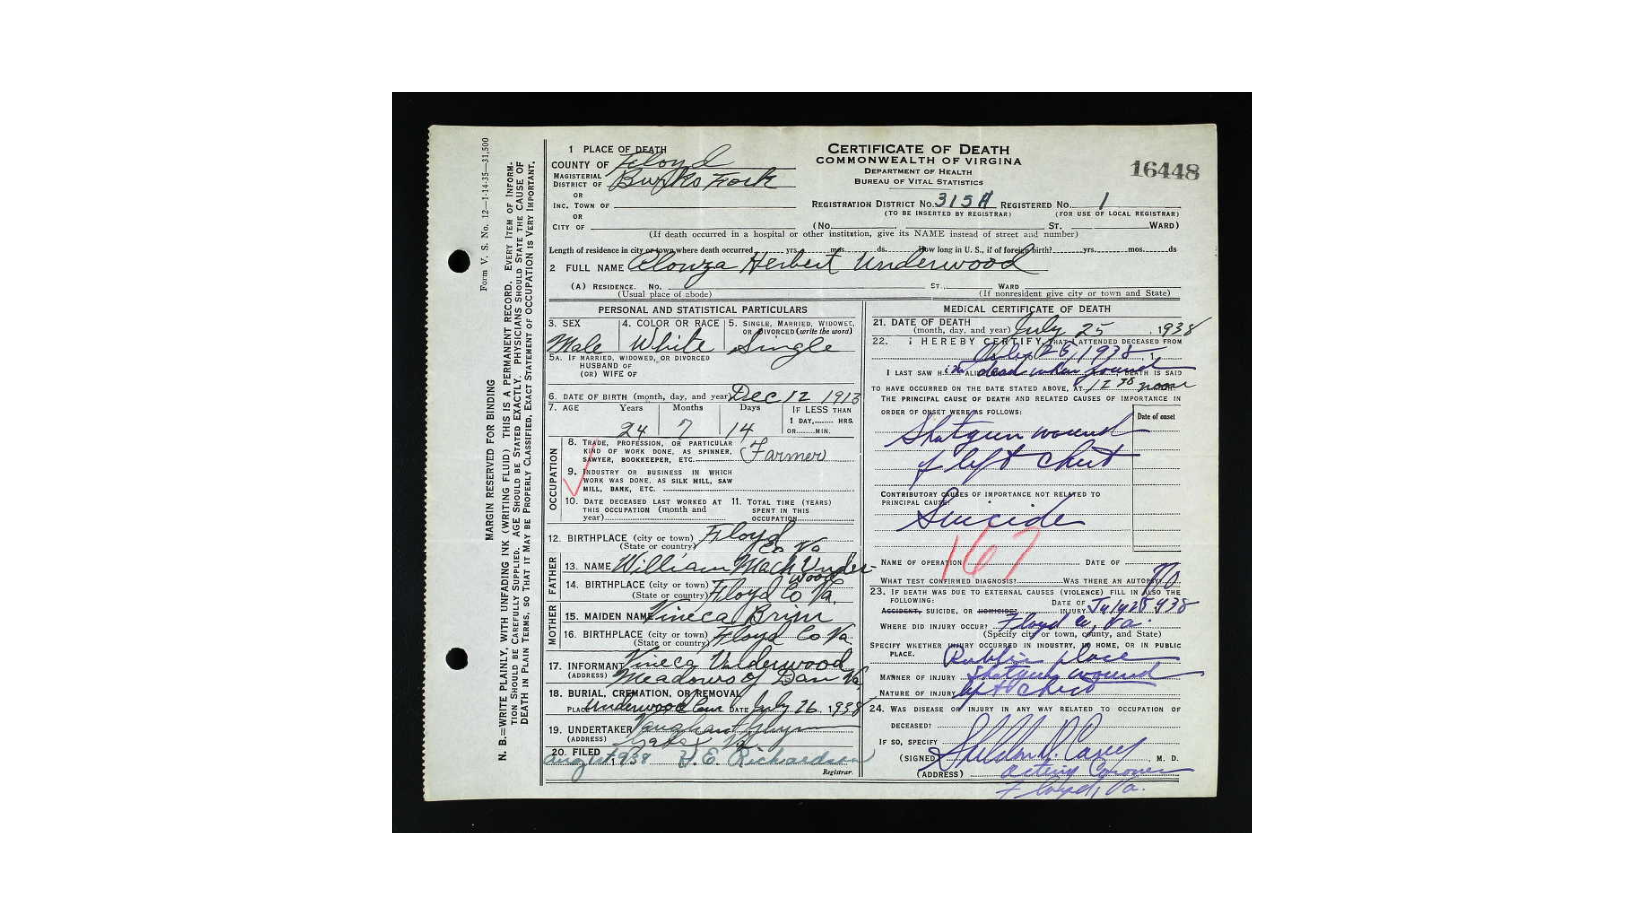 1 PLACE OF DEATH
COUNTY OF Floyd
MAGISTERIAL DISTRICT OF Burks Fork
OR
INC. TOWN OF
OR
CITY OF
CERTIFICATE OF DEATH
COMMONWEALTH OF VIRGINIA
DEPARTMENT OF HEALTH
BUREAU OF VITAL STATISTICS
16448
REGISTRATION DISTRICT NO. 315A REGISTERED NO. 1
(TO BE INSERTED BY REGISTRAR) (FOR USE OF LOCAL REGISTRAR)
(NO. ST. WARD)
(If death occurred in a hospital or other institution, give its NAME instead of street and number)
Length of residence in city or town where death occurred yrs. mos. ds. How long in U. S., if of foreign birth? yrs. mos. ds
2 FULL NAME Alonza Herbert Underwood
(A) RESIDENCE. NO. ST. WARD
(Usual place of abode) (If nonresident give city or town and State)
PERSONAL AND STATISTICAL PARTICULARS
3. SEX 4. COLOR OR RACE 5. SINGLE, MARRIED, WIDOWED, OR DIVORCED (write the word)
Male White Single
5A. IF MARRIED, WIDOWED, OR DIVORCED
HUSBAND OF
(OR) WIFE OF
6. DATE OF BIRTH (month, day, and year) Dec 12 1913
7. AGE Years Months Days IF LESS THAN
1 DAY, HRS.
OR MIN.
24 7 14
OCCUPATION
8. TRADE, PROFESSION, OR PARTICULAR
KIND OF WORK DONE, AS SPINNER,
SAWYER, BOOKKEEPER, ETC. Farmer
9. INDUSTRY OR BUSINESS IN WHICH
WORK WAS DONE, AS SILK MILL, SAW
MILL, BANK, ETC.
10. DATE DECEASED LAST WORKED AT
THIS OCCUPATION (month and
year)
11. TOTAL TIME (YEARS)
SPENT IN THIS
OCCUPATION
12. BIRTHPLACE (city or town) Floyd
(State or country) Co Va
FATHER
13. NAME William Mack Under-
wood
14. BIRTHPLACE (city or town)
(State or country) Floyd Co Va.
MOTHER
15. MAIDEN NAME Vineca Brim
16. BIRTHPLACE (city or town) Floyd Co Va
(State or country)
17. INFORMANT Vineca Underwood
(ADDRESS) Meadows of Dan Va
18. BURIAL, CREMATION, OR REMOVAL
PLACE Underwood Cem DATE July 26, 1938
19. UNDERTAKER Vaughan
(ADDRESS) Va.
20. FILED Aug 1st, 1938 Richardson
Registrar.
MEDICAL CERTIFICATE OF DEATH
21. DATE OF DEATH
(month, day, and year) July 25, 1938
22. I HEREBY CERTIFY, THAT I ATTENDED DECEASED FROM
July 26, 1938
I LAST SAW H im ALIVE dead when found, DEATH IS SAID
TO HAVE OCCURRED ON THE DATE STATED ABOVE, AT 12 noon
THE PRINCIPAL CAUSE OF DEATH AND RELATED CAUSES OF IMPORTANCE IN
ORDER OF ONSET WERE AS FOLLOWS: Date of onset
Shotgun wound
of left chest
CONTRIBUTORY CAUSES OF IMPORTANCE NOT RELATED TO
PRINCIPAL CAUSE:
Suicide
167
NAME OF OPERATION DATE OF
WHAT TEST CONFIRMED DIAGNOSIS? WAS THERE AN AUTOPSY? No
23. IF DEATH WAS DUE TO EXTERNAL CAUSES (VIOLENCE) FILL IN ALSO THE
FOLLOWING:
ACCIDENT, SUICIDE, OR HOMICIDE? DATE OF INJURY July 25 1938
WHERE DID INJURY OCCUR? Floyd Co, Va.
(Specify city or town, county, and State)
SPECIFY WHETHER INJURY OCCURRED IN INDUSTRY, IN HOME, OR IN PUBLIC
PLACE. Public place
MANNER OF INJURY Shotgun wound
NATURE OF INJURY left chest
24. WAS DISEASE OR INJURY IN ANY WAY RELATED TO OCCUPATION OF
DECEASED?
IF SO, SPECIFY
(SIGNED) M. D.
(ADDRESS) Acting Coroner
Floyd, Va.
Form V. S. No. 12—1-14-35—31,500
MARGIN RESERVED FOR BINDING
N. B.—WRITE PLAINLY, WITH UNFADING INK (WRITING FLUID) THIS IS A PERMANENT RECORD. EVERY ITEM OF INFORM-
TION SHOULD BE CAREFULLY SUPPLIED. AGE SHOULD BE STATED EXACTLY. PHYSICIANS SHOULD STATE THE CAUSE OF
DEATH IN PLAIN TERMS, SO THAT IT MAY BE PROPERLY CLASSIFIED, EXACT STATEMENT OF OCCUPATION IS VERY IMPORTANT.